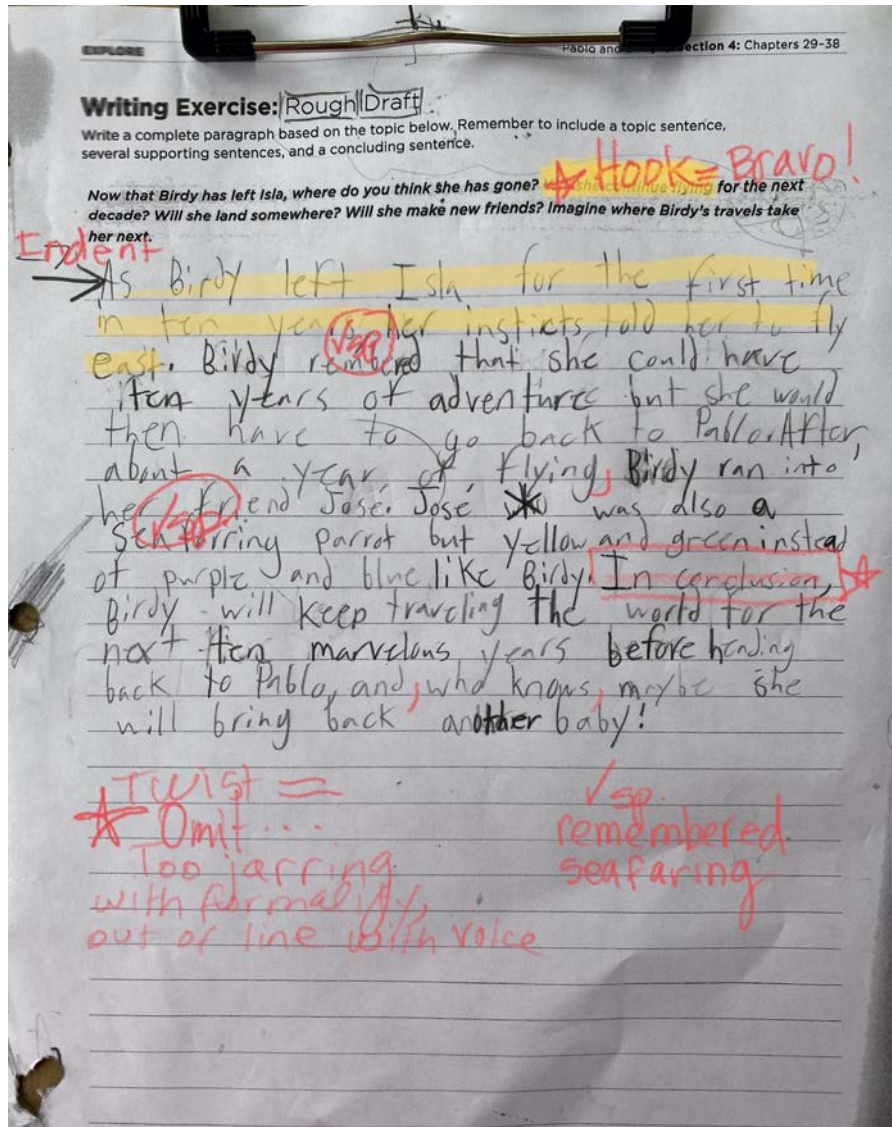 EXPLORE
Pablo and ection 4: Chapters 29-38
Writing Exercise: Rough Draft
Write a complete paragraph based on the topic below. Remember to include a topic sentence,
several supporting sentences, and a concluding sentence.
Hook = Bravo!
Now that Birdy has left Isla, where do you think she has gone? she continue flying for the next
decade? Will she land somewhere? Will she make new friends? Imagine where Birdy's travels take
her next.
Indent
As Birdy left Isla for the first time
in ten years, her insticts, told her to fly
east. Birdy rembered that she could have
ten years of adventure but she would
then have to go back to Pablo. After
about a year of flying, Birdy ran into
her friend José. José was also a
parrot but yellow and green instead
of purple and blue like Birdy. In conclusion,
Birdy will keep traveling the world for the
next ten marvelous years before heading
back to Pablo, and, who knows, maybe she
will bring back another baby!
Twist =
Omit...
Too jarring
with formality,
out of line with voice
√sp.
remembered
seafaring
√sp
√sp.